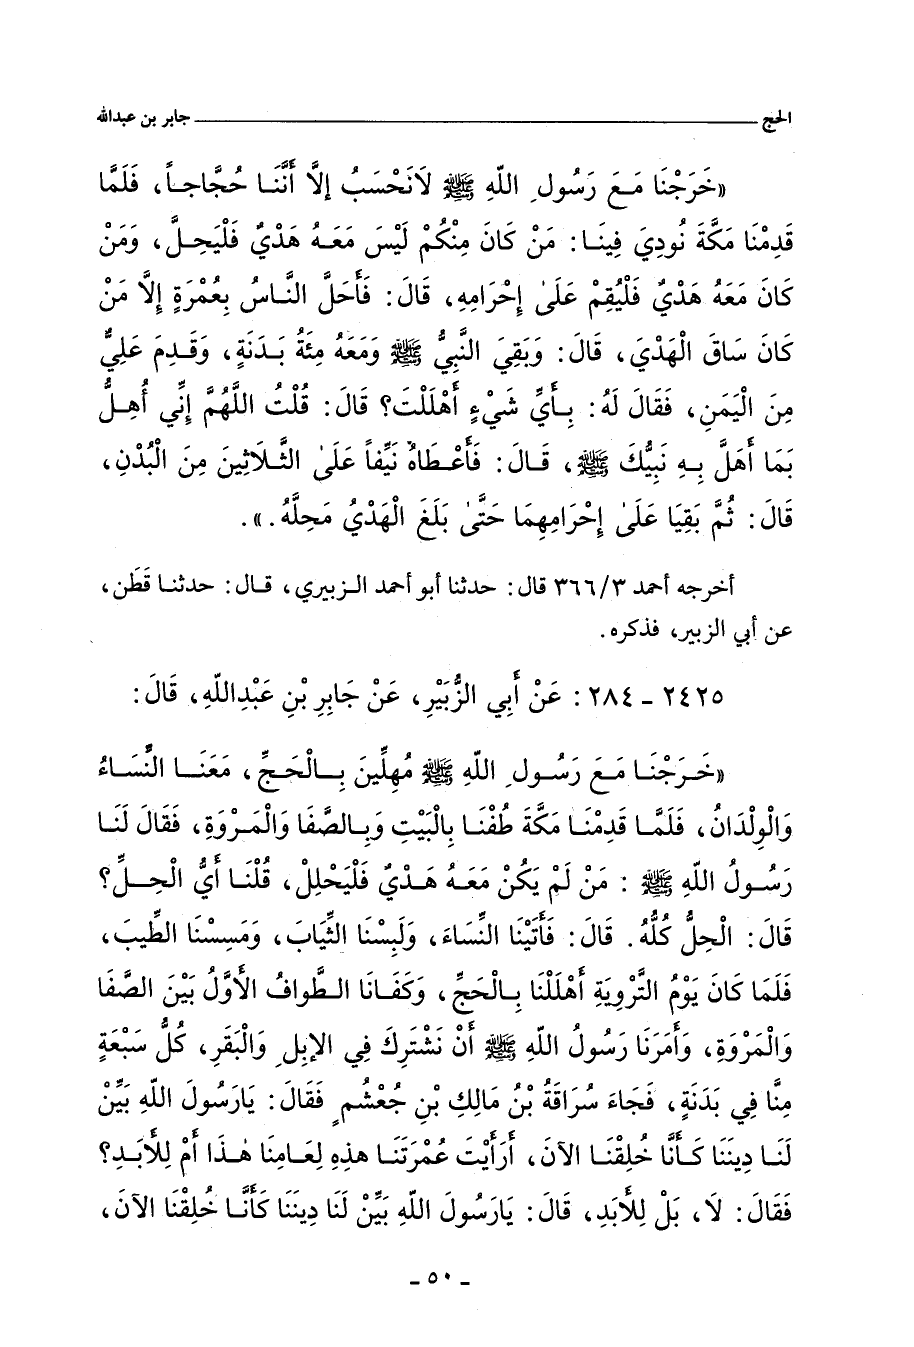 الحج ــــــــــــــــــــ جابر بن عبدالله
«خَرَجْنَا مَعَ رَسُولِ اللهِ ﷺ لاَنَحْسَبُ إلاَّ أَنَّنَا حُجَّاجاً، فَلَمَّا
قَدِمْنَا مَكَّةَ نُودِيَ فِينَا: مَنْ كَانَ مِنْكُمْ لَيْسَ مَعَهُ هَدْيٌ فَلْيَحِلَّ، وَمَنْ
كَانَ مَعَهُ هَدْيٌ فَلْيُقِمْ عَلَىٰ إِحْرَامِهِ، قَالَ: فَأَحَلَّ النَّاسُ بِعُمْرَةٍ إِلاَّ مَنْ
كَانَ سَاقَ الْهَدْيَ، قَالَ: وَبَقِيَ النَّبِيُّ ﷺ وَمَعَهُ مِئَةُ بَدَنَةٍ، وَقَدِمَ عَلِيٌّ
مِنَ الْيَمَنِ، فَقَالَ لَهُ: بِأَيِّ شَيْءٍ أَهْلَلْتَ؟ قَالَ: قُلْتُ اللَّهُمَّ إِنِّي أُهِلُّ
بَمَا أَهَلَّ بِهِ نَبِيُّكَ ﷺ، قَالَ: فَأَعْطَاهُ نَيِّفاً عَلَىٰ الثَّلاَثِينَ مِنَ الْبُدْنِ،
قَالَ: ثُمَّ بَقِيَا عَلَىٰ إِحْرَامِهِمَا حَتَّىٰ بَلَغَ الْهَدْيُ مَحِلَّهُ.».
أخرجه أحمد ٣٦٦/٣ قال: حدثنا أبو أحمد الزبيري، قال: حدثنا قَطَن،
عن أبي الزبير، فذكره.
٢٤٢٥ - ٢٨٤: عَنْ أَبِي الزُّبَيْرِ، عَنْ جَابِرِ بْنِ عَبْدِاللهِ، قَالَ:
«خَرَجْنَا مَعَ رَسُولِ اللهِ ﷺ مُهِلِّينَ بِالْحَجِّ، مَعَنَا النِّسَاءُ
وَالْوِلْدَانُ، فَلَمَّا قَدِمْنَا مَكَّةَ طُفْنَا بِالْبَيْتِ وَبِالصَّفَا وَالْمَرْوَةِ، فَقَالَ لَنَا
رَسُولُ اللهِ ﷺ : مَنْ لَمْ يَكُنْ مَعَهُ هَدْيٌ فَلْيَحْلِلْ، قُلْنَا أَيُّ الْحِلِّ؟
قَالَ: الْحِلُّ كُلُّهُ. قَالَ: فَأَتَيْنَا النِّسَاءَ، وَلَبِسْنَا الثِّيَابَ، وَمَسِسْنَا الطِّيبَ،
فَلَمَا كَانَ يَوْمُ التَّرْوِيَةِ أَهْلَلْنَا بِالْحَجِّ، وَكَفَانَا الطَّوافُ الأَوَّلُ بَيْنَ الصَّفَا
وَالْمَرْوَةِ، وَأَمَرَنَا رَسُولُ اللهِ ﷺ أَنْ نَشْتَرِكَ فِي الإِبِلِ وَالْبَقَرِ، كُلُّ سَبْعَةٍ
مِنَّا فِي بَدَنَةٍ، فَجَاءَ سُرَاقَةُ بْنُ مَالِكِ بْنِ جُعْشُمٍ فَقَالَ: يَارَسُولَ اللهِ بَيِّنْ
لَنَا دِينَنَا كَأَنَّا خُلِقْنَا الآنَ، أَرَأَيْتَ عُمْرَتَنَا هذِهِ لِعَامِنَا هٰذَا أَمْ لِلأَبَدِ؟
فَقَالَ: لاَ، بَلْ لِلأَبَدِ، قَالَ: يَارَسُولَ اللهِ بَيِّنْ لَنَا دِينَنَا كَأَنَّا خُلِقْنَا الآنَ،
- ٥٠ -